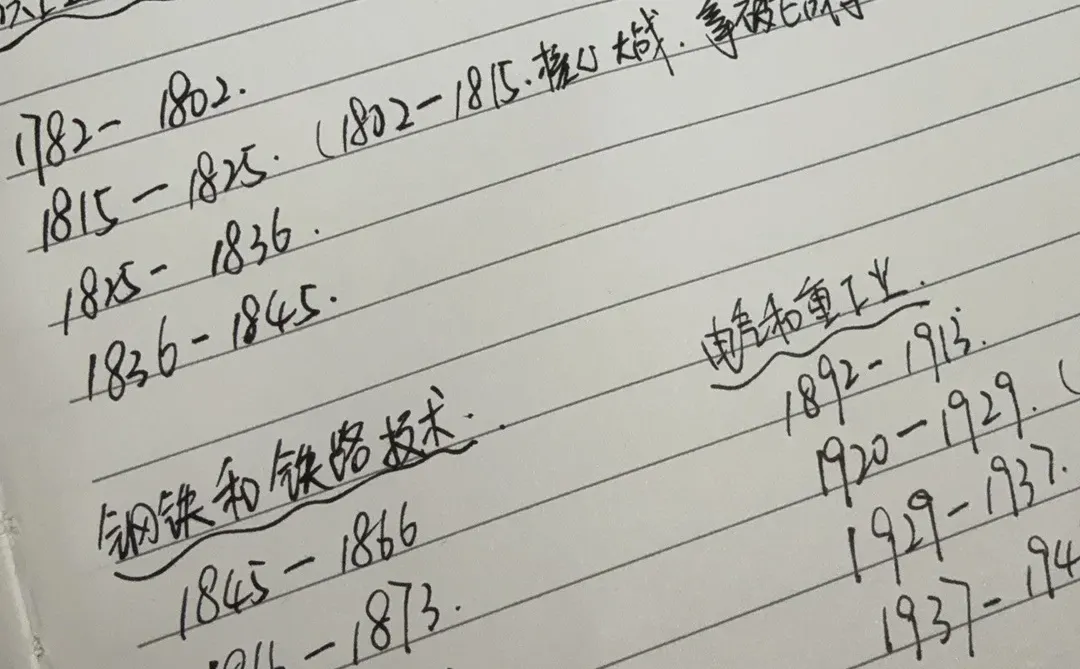 1782- 1802.
1815-1825. (1802-1815.核心大战.拿破
1825- 1836.
1836-1845.
钢铁和铁路技术.
1845-1866
-1873.
电气和重工业.
1892-1913.
1920-1929. (
1929-1937.
1937-194